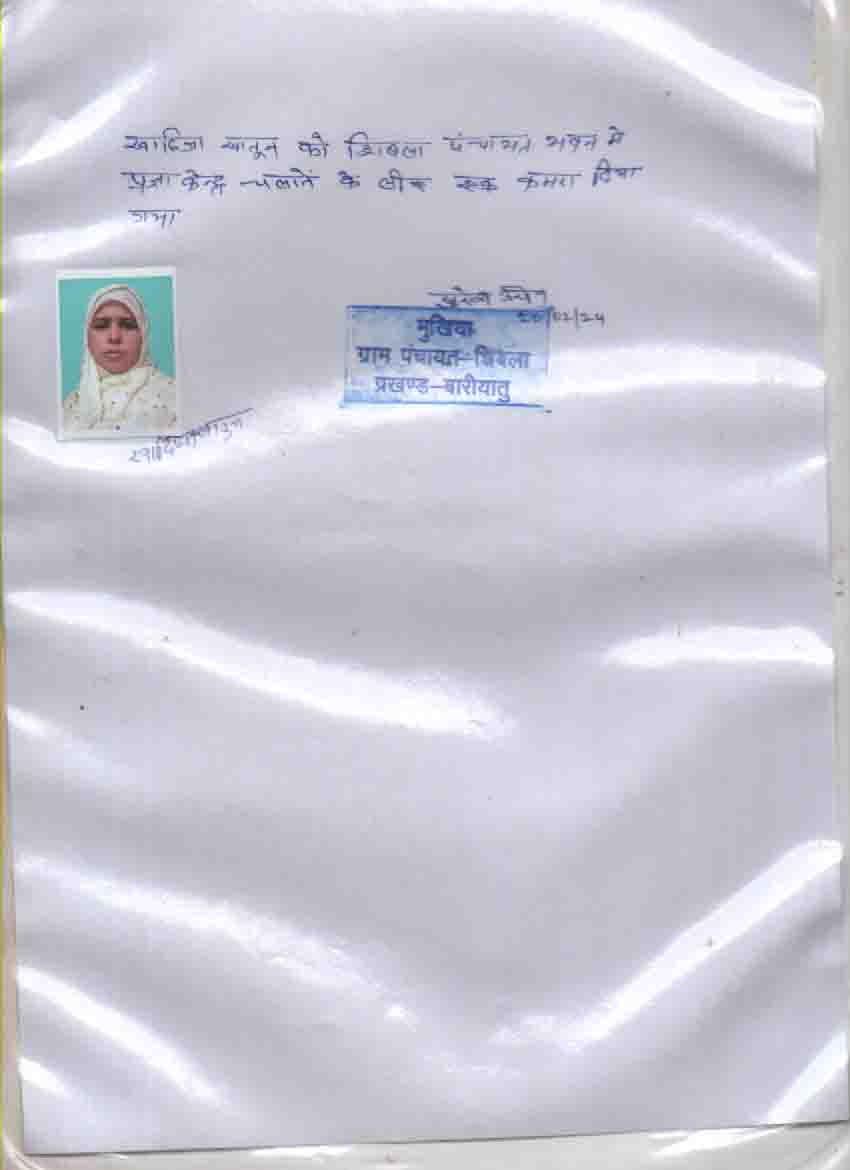 खादिजा खातुन को शिबला पंचायत भवन मे
प्रज्ञा केन्द्र चलाने के लीए एक कमरा दिया
गया
सुरेश उराँव
20/02/24
मुखिया
ग्राम पंचायत-शिबला
प्रखण्ड-बारीयातु
खादिजा खातुन